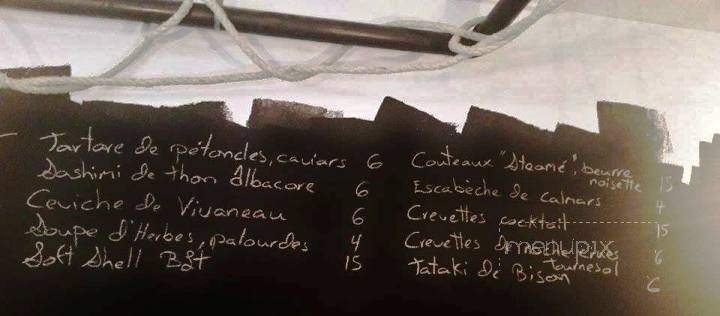 Tartare de pétoncles, caviars 6
Sashimi de thon Albacore 6
Ceviche de Vivaneau 6
Soupe d'Herbes, palourdes 4
Soft Shell B&T 15
Couteaux "Steamé", beurre
noisette 15
Escabèche de calmars 4
Crevettes cocktail 15
Crevettes de 6
tournesol
Tataki de Bison 6
menupix